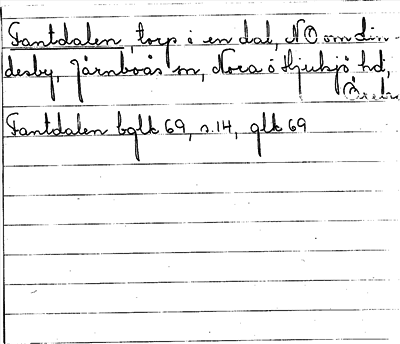 Fantdalen, torp i en dal, NO om Lin-
desby, Järnboås sn, Nora o Hjulsjö hd,
Örebro
Fantdalen bglk 69, s. 14, glk 69